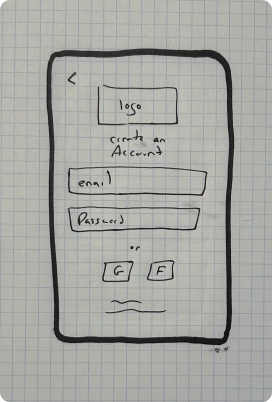 <
logo
create an
Account
email
Password
or
G F